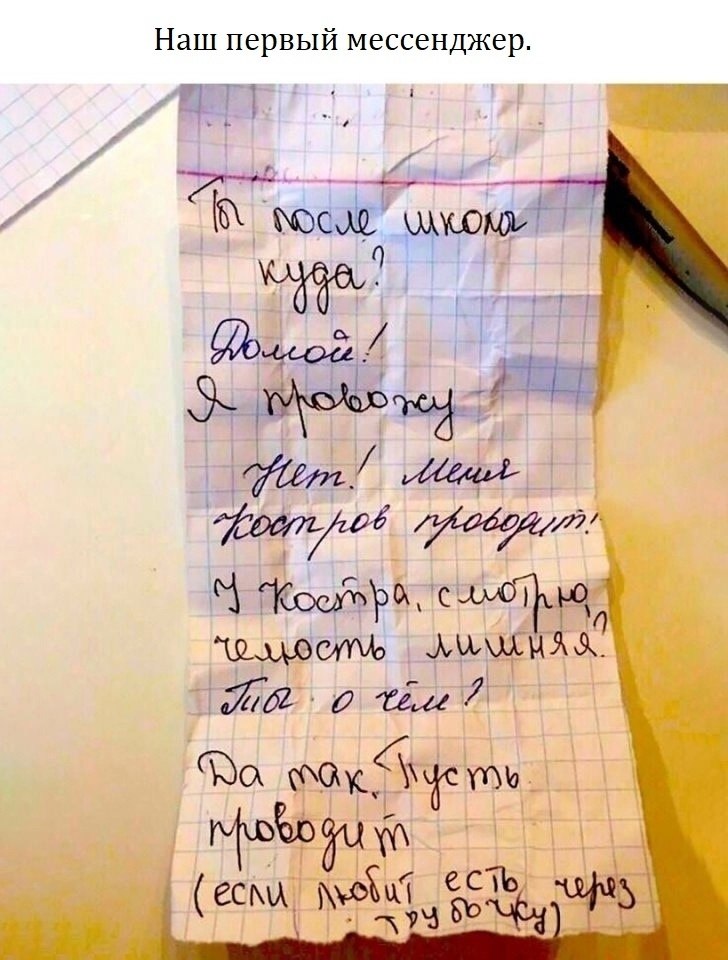 Наш первый мессенджер.
Ты после школы
куда?
Домой!
Я провожу
Нет! Меня
Костров проводит!
У Костра, смотрю,
челюсть лишняя?
Ты о чём?
Да так. Пусть
проводит
(если любит есть через
трубочку)